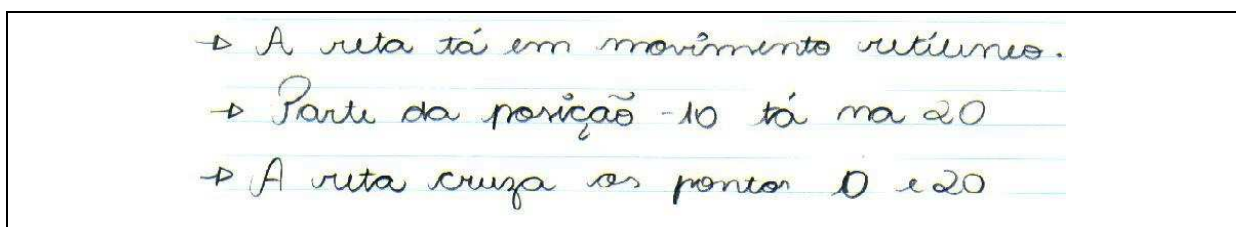 → A reta tá em movimento retilíneo.
→ Parte da posição -10 tá na 20
→ A reta cruza os pontos 0 e 20